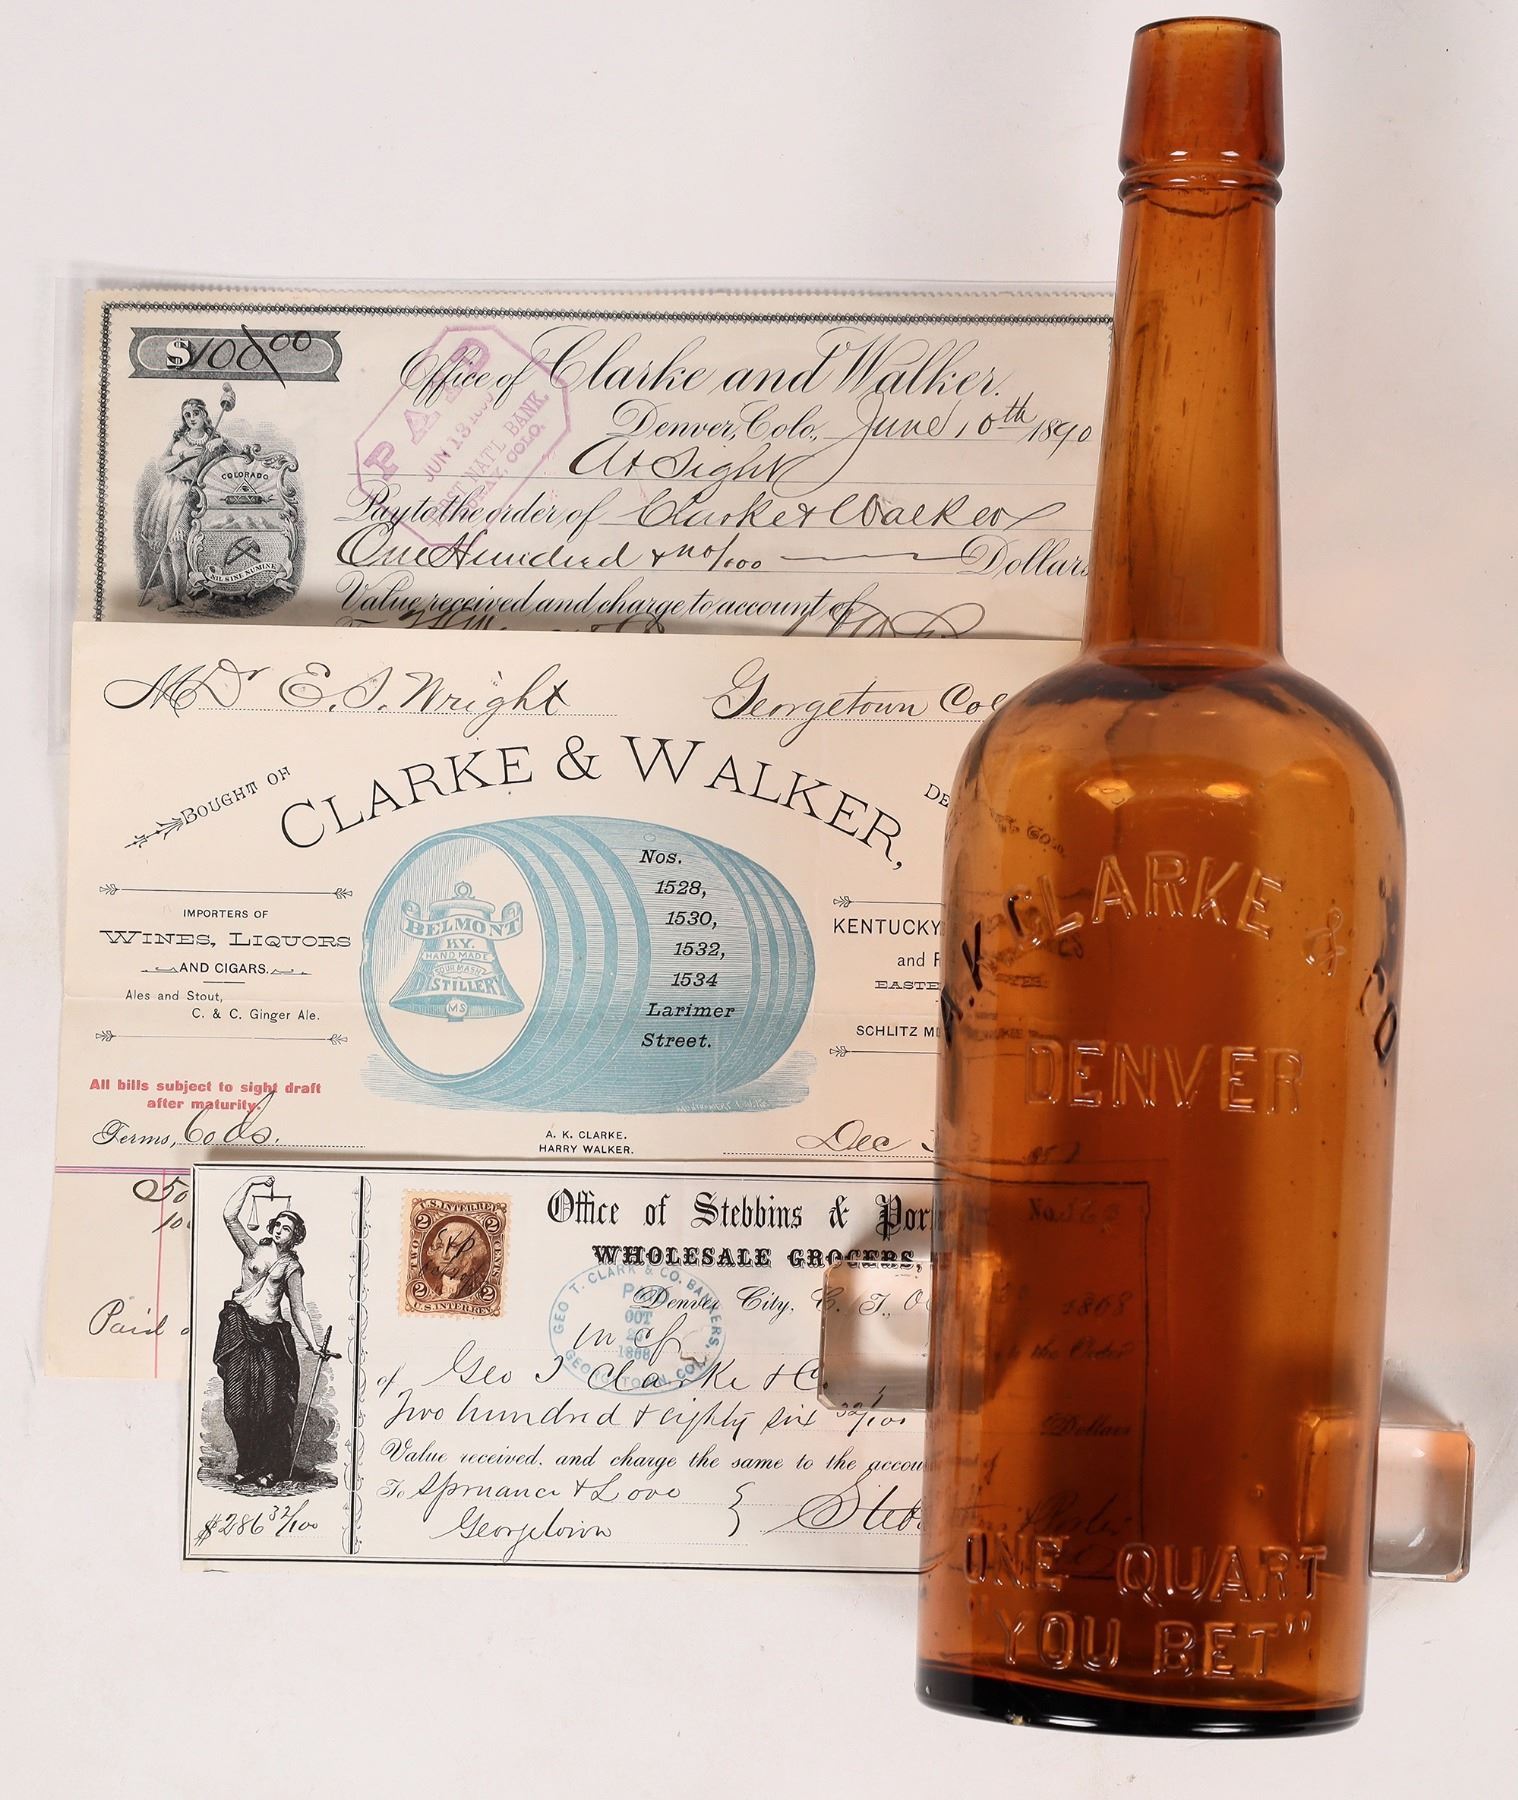 $100.00
Office of Clarke and Walker.
PAID
JUN 13 1890
FIRST NAT'L BANK
COLO.
Denver, Colo., June 10th 1890
At Sight
Pay to the order of Clarke & Walker
One Hundred & no/100 Dollars
Value received and charge to account of
COLORADO
NIL SINE NUMINE
Mr E. S. Wright Georgetown Col
BOUGHT OF
CLARKE & WALKER,
IMPORTERS OF
WINES, LIQUORS
AND CIGARS.
Ales and Stout,
C. & C. Ginger Ale.
BELMONT
KY.
HAND MADE
SOUR MASH
DISTILLERY
MS
Nos.
1528,
1530,
1532,
1534
Larimer
Street.
KENTUCKY
and
SCHLITZ
All bills subject to sight draft
after maturity.
Terms,
A. K. CLARKE.
HARRY WALKER.
Dec
50
Paid
U.S. INTER. REV.
2 2
TWO CENTS
2 2
U.S. INTER. REV.
Office of Stebbins & Por
No. 563
WHOLESALE GROCERS,
GEO T. CLARK & CO. BANKERS,
OCT
1868
GEORGETOWN, COL.
Denver City, C. T., 1868
to the Order
of Geo T Clarke & Co
Two hundred & eighty six 32/100 Dollars
Value received, and charge the same to the account of
To Spruance & Love
Georgetown
$286 32/100
A.K. CLARKE & CO
DENVER
ONE QUART
"YOU BET"